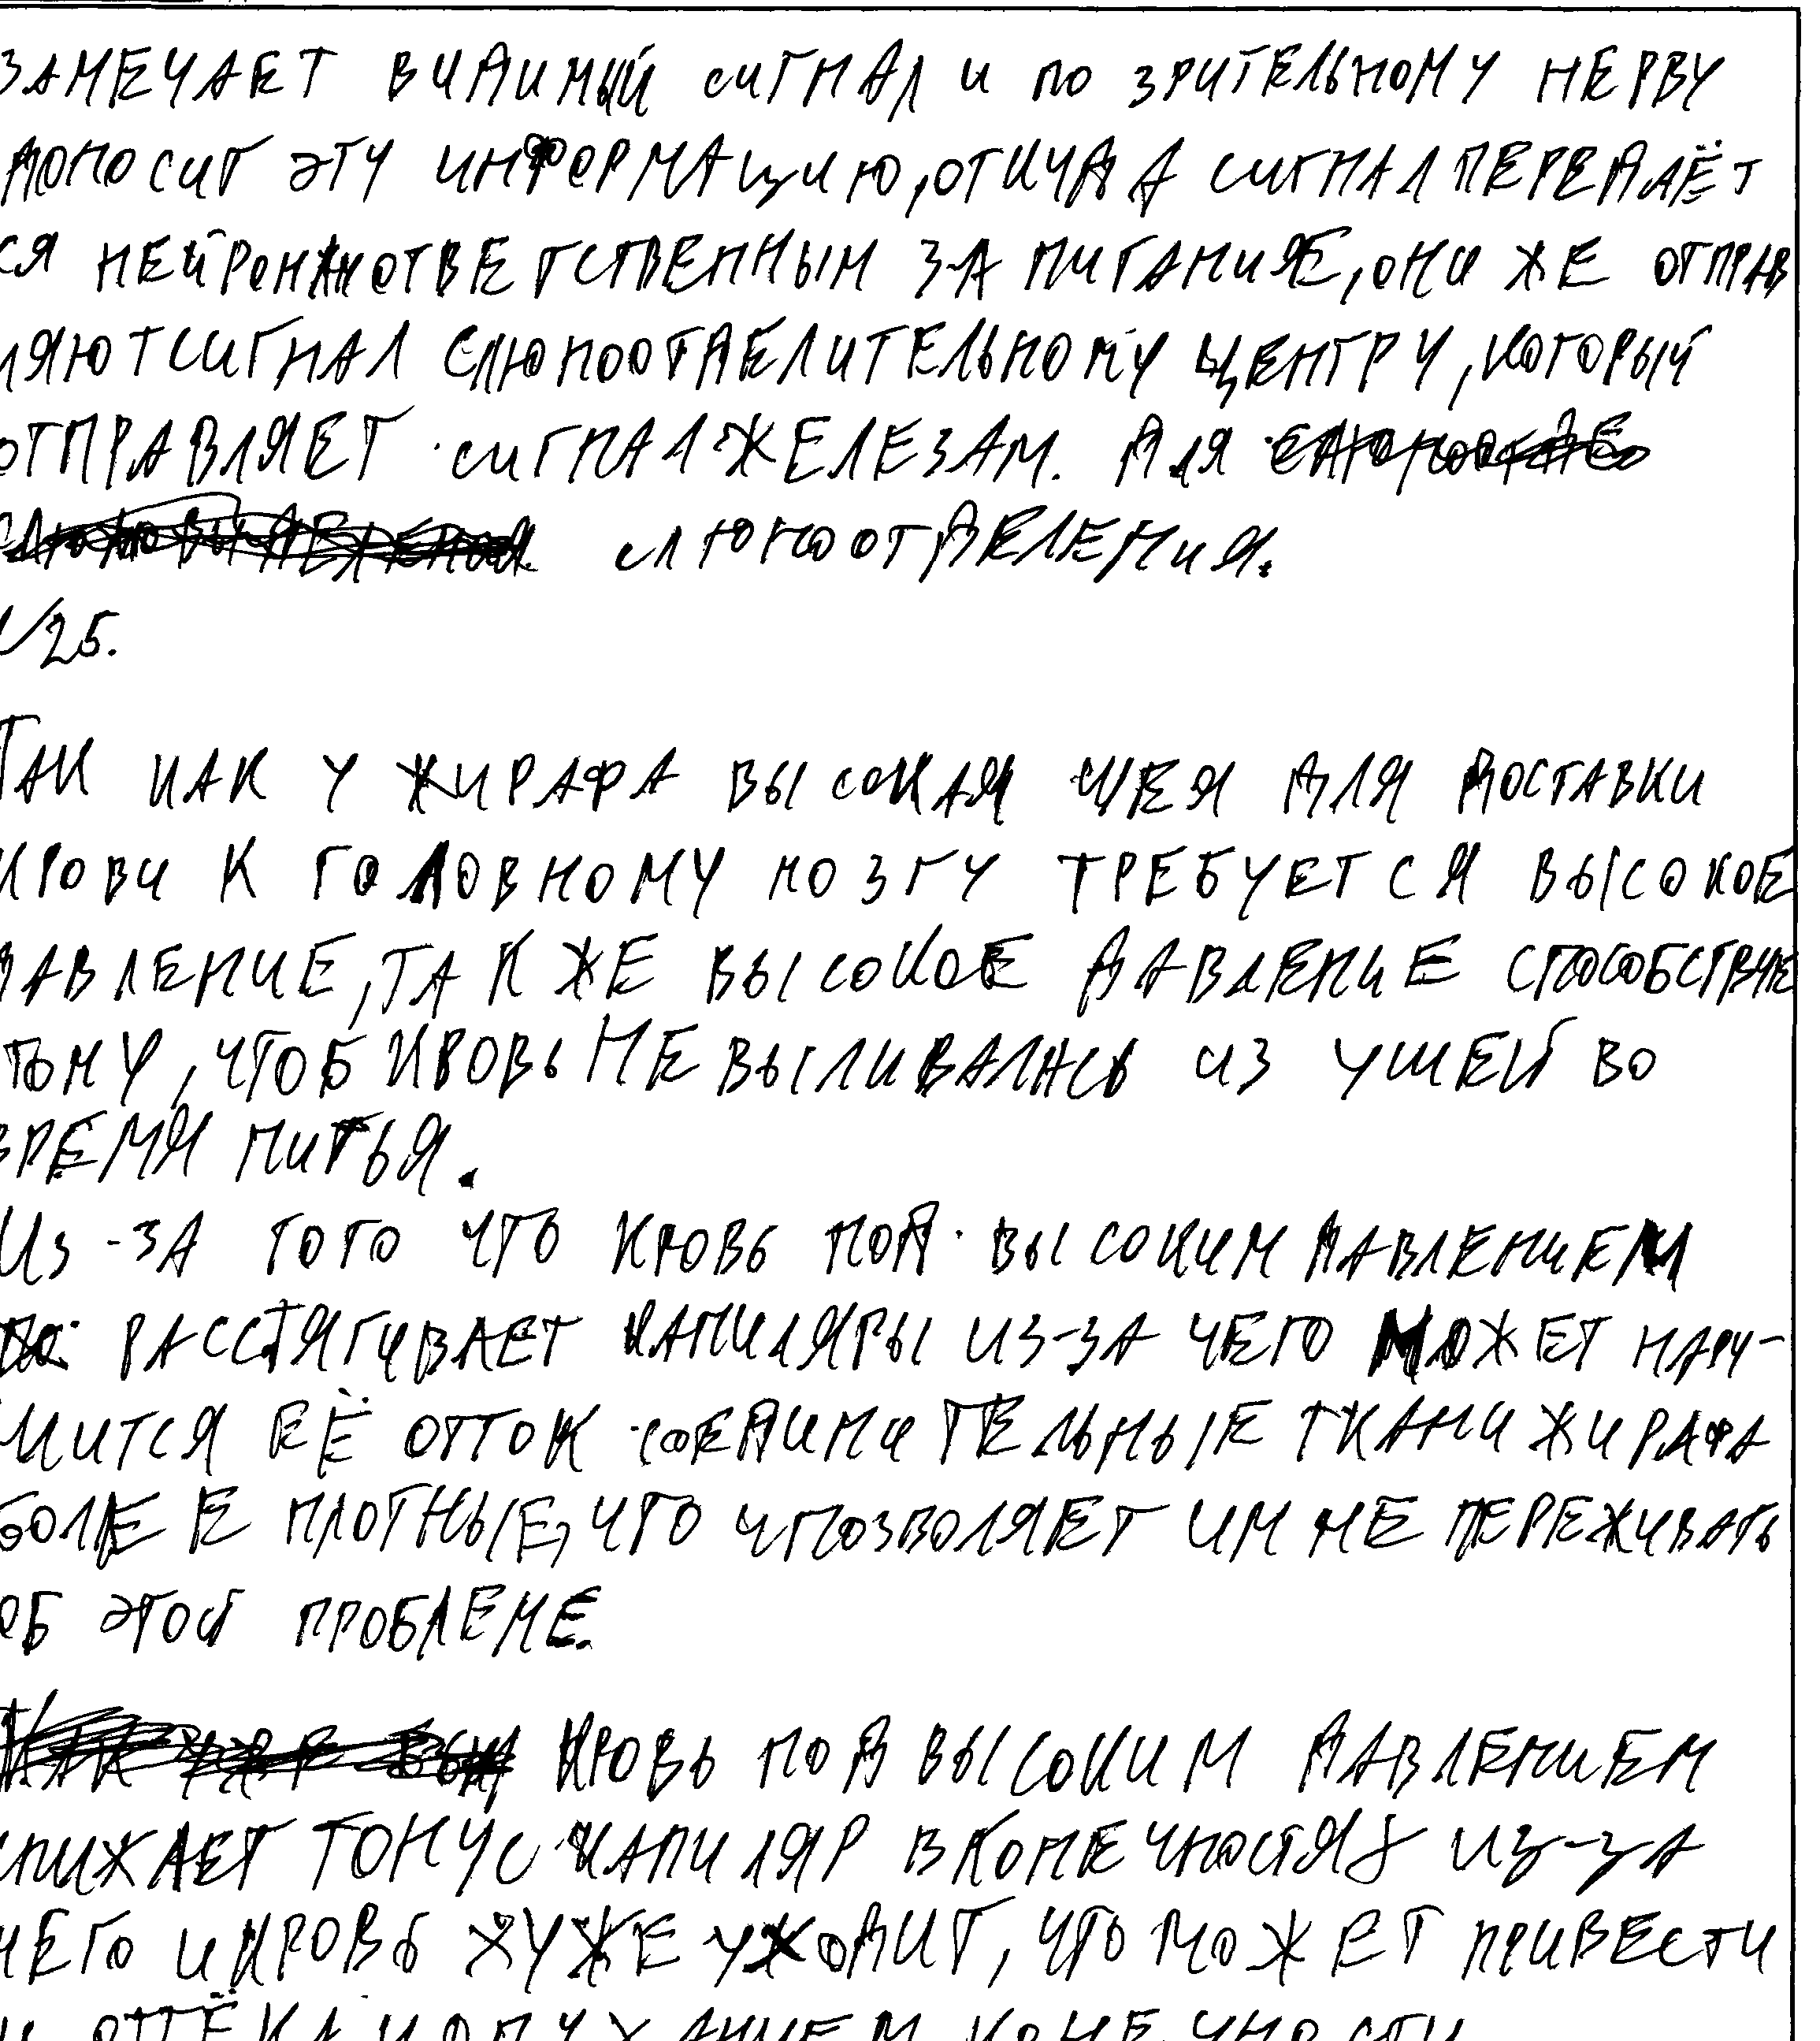 ЗАМЕЧАЕТ ВИДИМЫЙ СИГНАЛ И ПО ЗРИТЕЛЬНОМУ НЕРВУ
ДОНОСИТ ЭТУ ИНФОРМАЦИЮ, ОТКУДА СИГНАЛ ПЕРЕДАЁТ
СЯ ОТВЕТСТВЕННЫМ ЗА ПИТАНИЕ, ОНИ ЖЕ ОТПРАВ
ЛЯЮТ СИГНАЛ СЛЮНООТДЕЛИТЕЛЬНОМУ ЦЕНТРУ, КОТОРЫЙ
ОТПРАВЛЯЕТ СИГНАЛ ЖЕЛЕЗАМ. ДЛЯ
СЛЮНООТДЕЛЕНИЯ.
№25.
ТАК КАК У ЖИРАФА ВЫСОКАЯ ШЕЯ ДЛЯ ДОСТАВКИ
КРОВИ К ГОЛОВНОМУ МОЗГУ ТРЕБУЕТСЯ ВЫСОКОЕ
ДАВЛЕНИЕ, ТАК ЖЕ ВЫСОКОЕ ДАВЛЕНИЕ СПОСОБСТВУЕ
ТОМУ, ЧТОБ КРОВЬ НЕ ВЫЛИВАЛАСЬ ИЗ УШЕЙ ВО
ВРЕМЯ ПИТЬЯ.
ИЗ-ЗА ТОГО ЧТО КРОВЬ ПОД ВЫСОКИМ ДАВЛЕНИЕМ
РАССТЯГИВАЕТ КАПИЛЯРЫ ИЗ-ЗА ЧЕГО МОЖЕТ НАРУ-
ШИТСЯ ЕЁ ОТТОК СОЕДИНИТЕЛЬНЫЕ ТКАНИ ЖИРАФА
БОЛЕЕ ПЛОТНЫЕ, ЧТО И ПОЗВОЛЯЕТ ИМ НЕ ПЕРЕЖИВАТЬ
ОБ ЭТОЙ ПРОБЛЕМЕ.
КРОВЬ ПОД ВЫСОКИМ ДАВЛЕНИЕМ
СНИЖАЕТ ТОНУС КАПИЛЯР В КОНЕЧНОСТЯХ ИЗ-ЗА
ЧЕГО И КРОВЬ ХУЖЕ УХОДИТ, ЧТО МОЖЕТ ПРИВЕСТИ